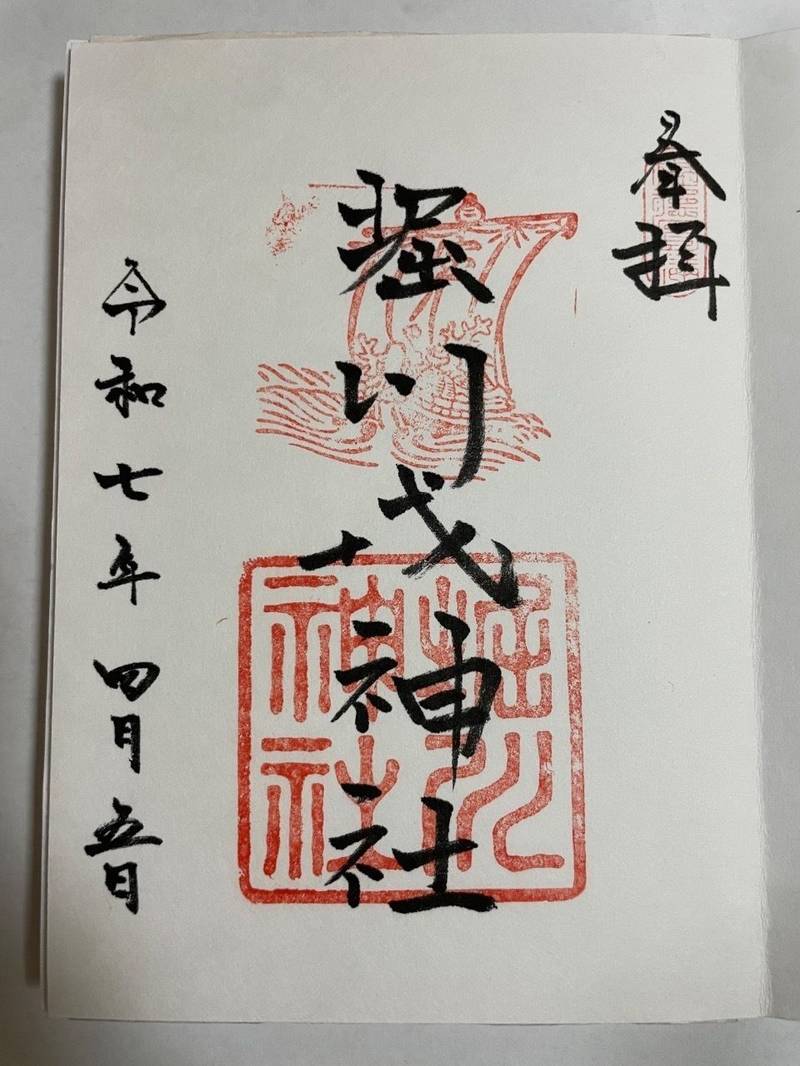 奉拝
堀川戎神社
堀川
神社
令和七年四月五日